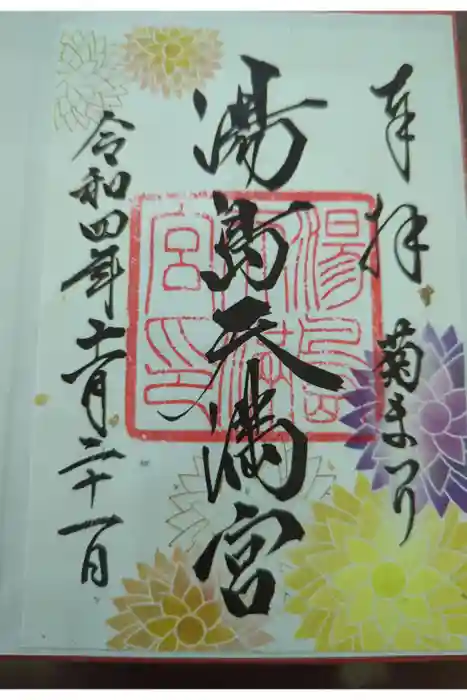 奉拝　菊まつり
湯島天満宮
令和四年十一月二十一日
湯島
天満
宮印